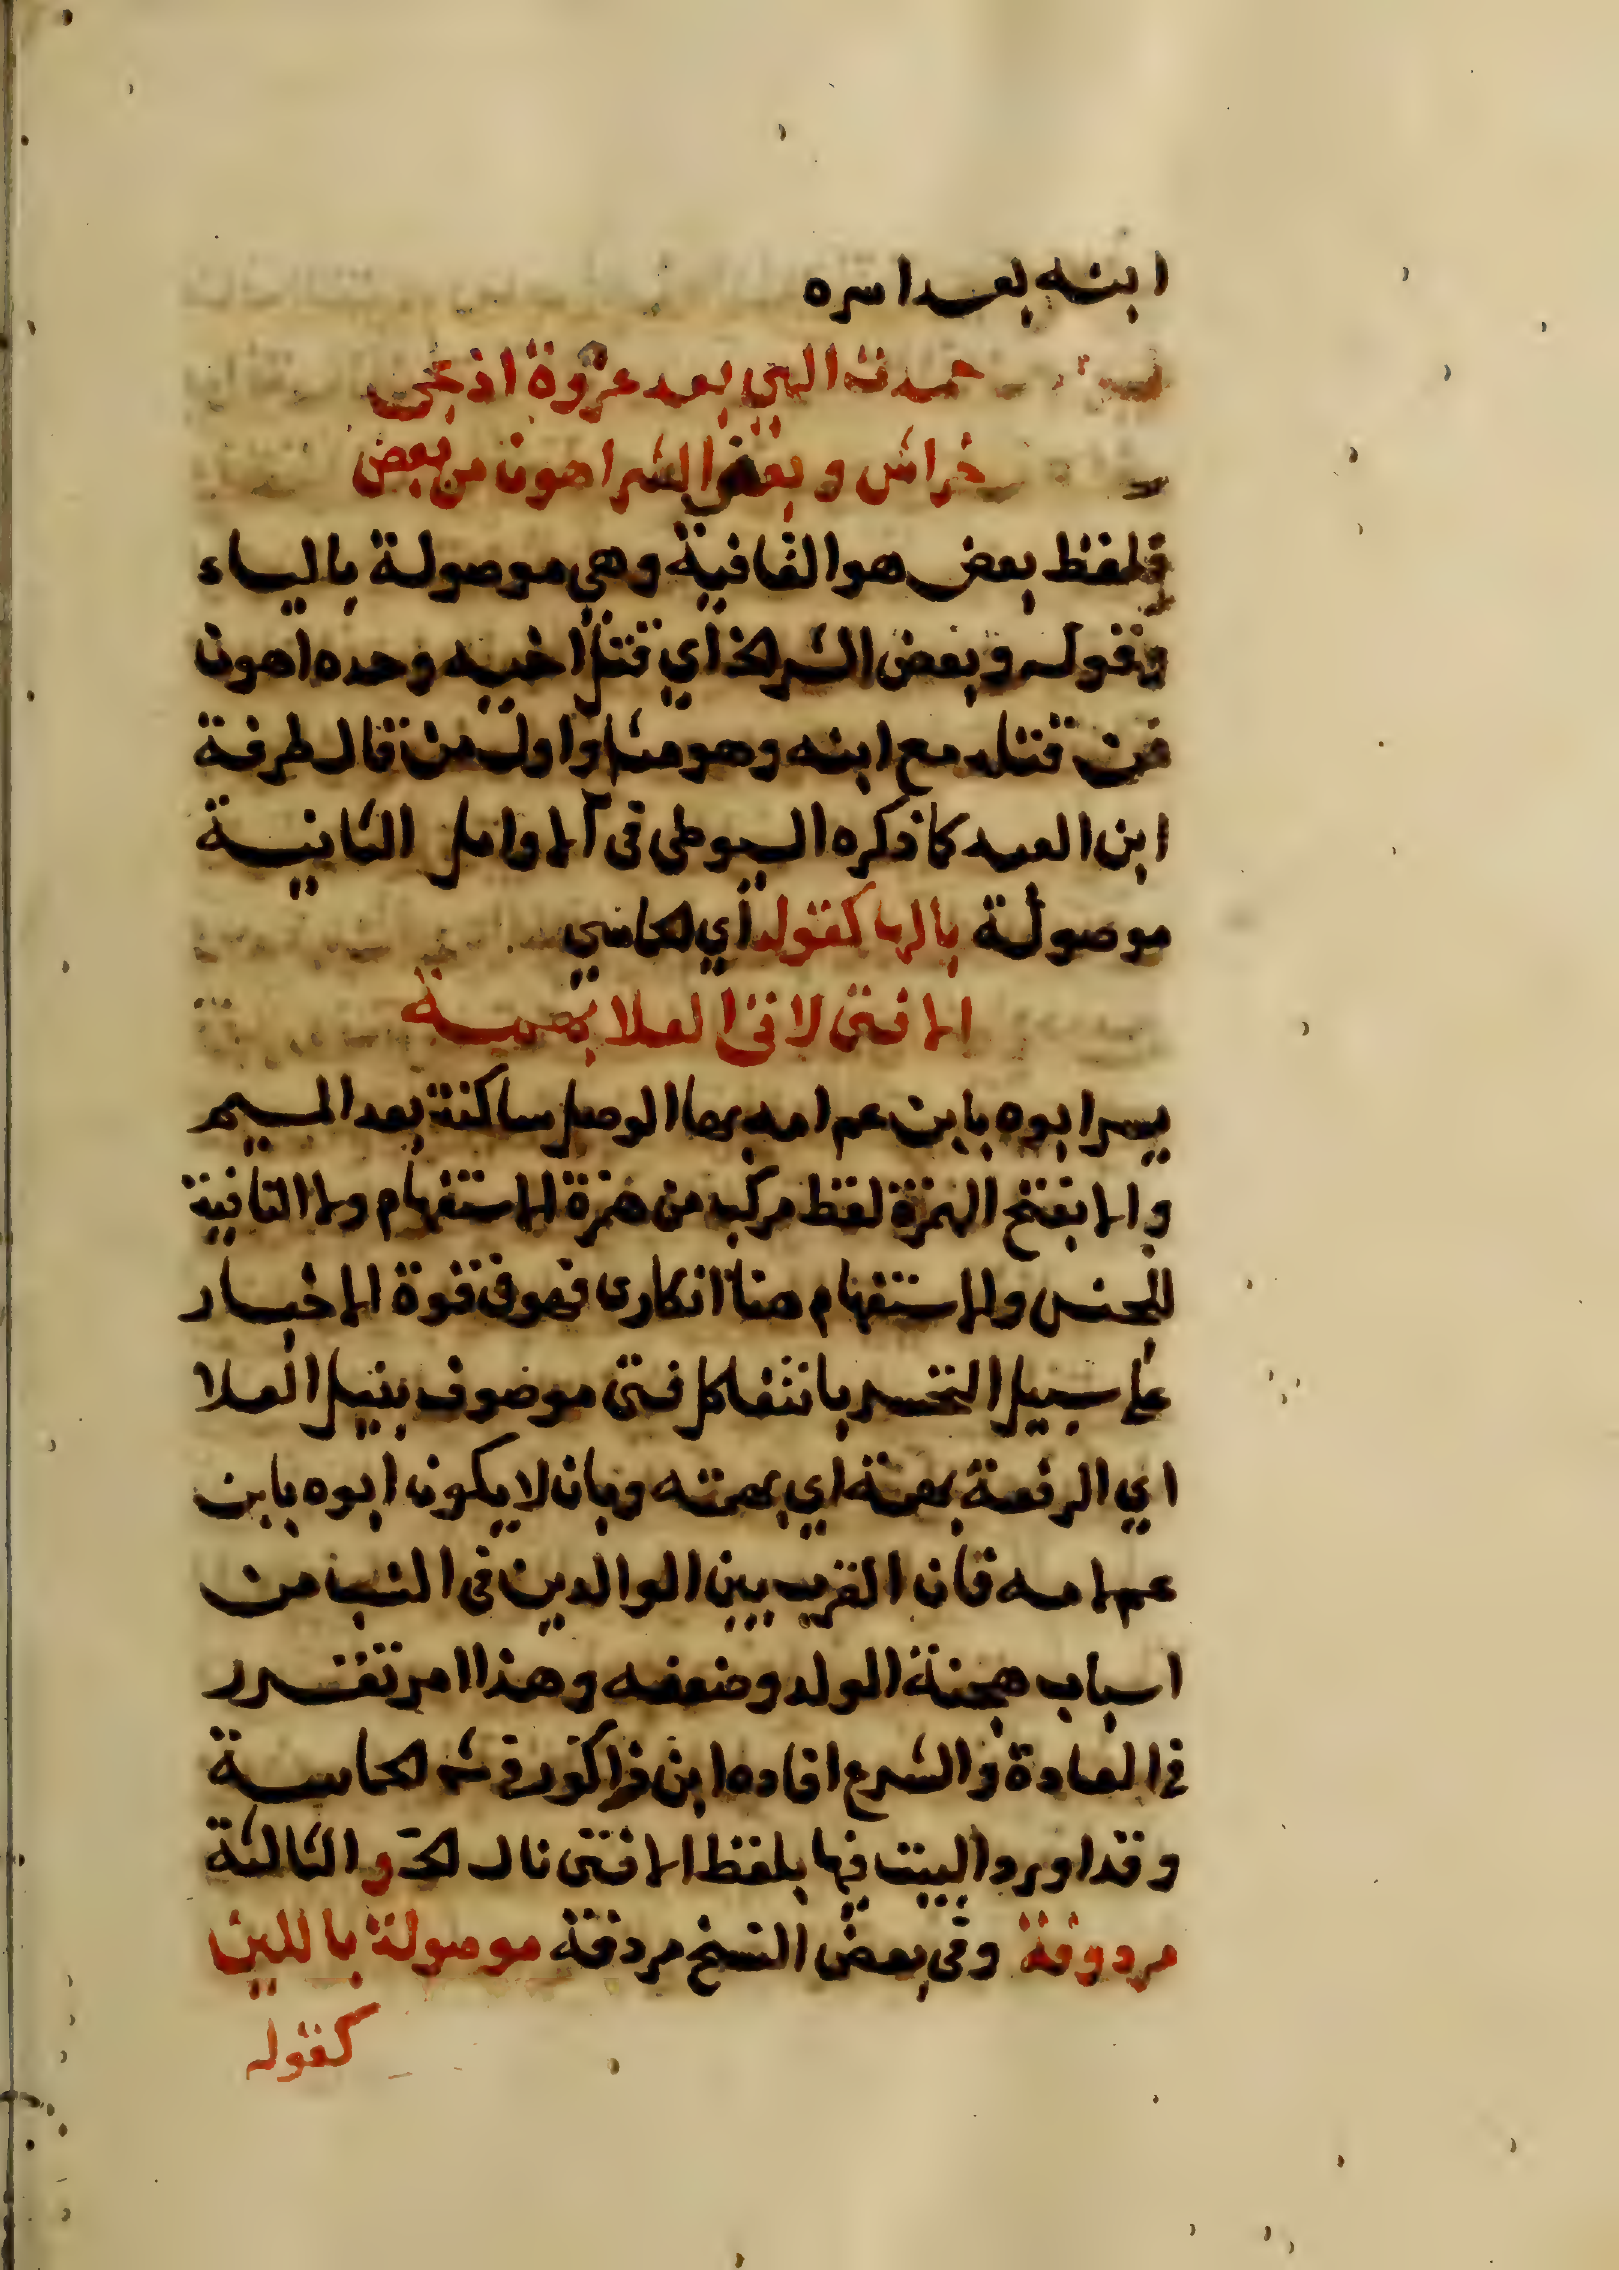 ابنه بعد اسره
حمدت الهي بعد عروة اذ نجى
خراش وبعض الشر اهون من بعض
فلفظ بعض هو القافية وهي موصولة بالياء
وقوله وبعض الشر الخ اي قتل اخيه وحده اهون
من قتله مع ابنه وهو مثل واول من قاله طرفة
ابن العبد كما ذكره السيوطى فى الاوامل الثانية
موصولة بالها كقوله اي الحماسي
الا فتى لاقى العلا بهمة
يسرا بوه بابن عم امه بها الوصل ساكنة بعد الميم
والا بفتح الهمزة لفظ مركب من همزة الاستفهام ولا التانية
للجنس والاستفهام هنا انكارى فهو فى قوة الاخبار
على سبيل التحسر بانتفا كل فتى موصوف بنيل العلا
اي الرفعة بهمة اي بهمته وبان لا يكون ابوه بابن
عم امه فان القرب بين الوالدين فى النسب من
اسباب هجنة الولد وضعفه وهذا امر تقرر
فى العادة والشرع افاده ابن زاكور فى شم الحماسة
وقد اورد البيت فيها بلفظ الا فتى نال الخ والثالثة
مردوفة وفى بعض النسخ مردفة موصولة باللين
كقوله